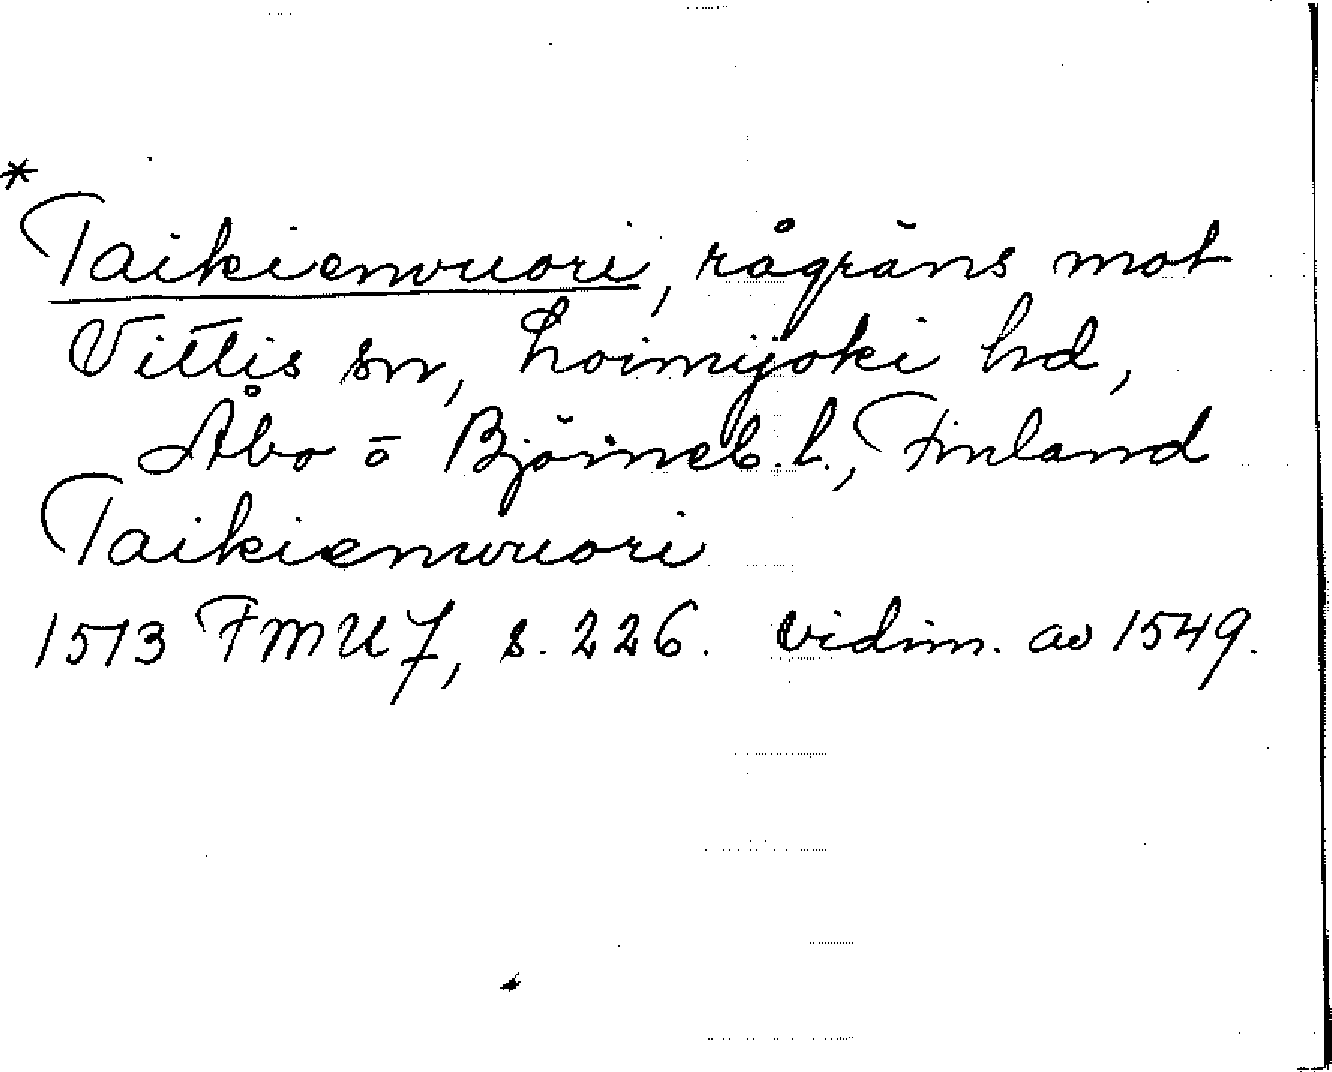 *
Taikienvuori, rågräns mot
Vittis sn, Loimijoki hd,
Åbo o Björneb. l., Finland
Taikienwuori
1513 FMU 7, s. 226. vidim. av 1549.